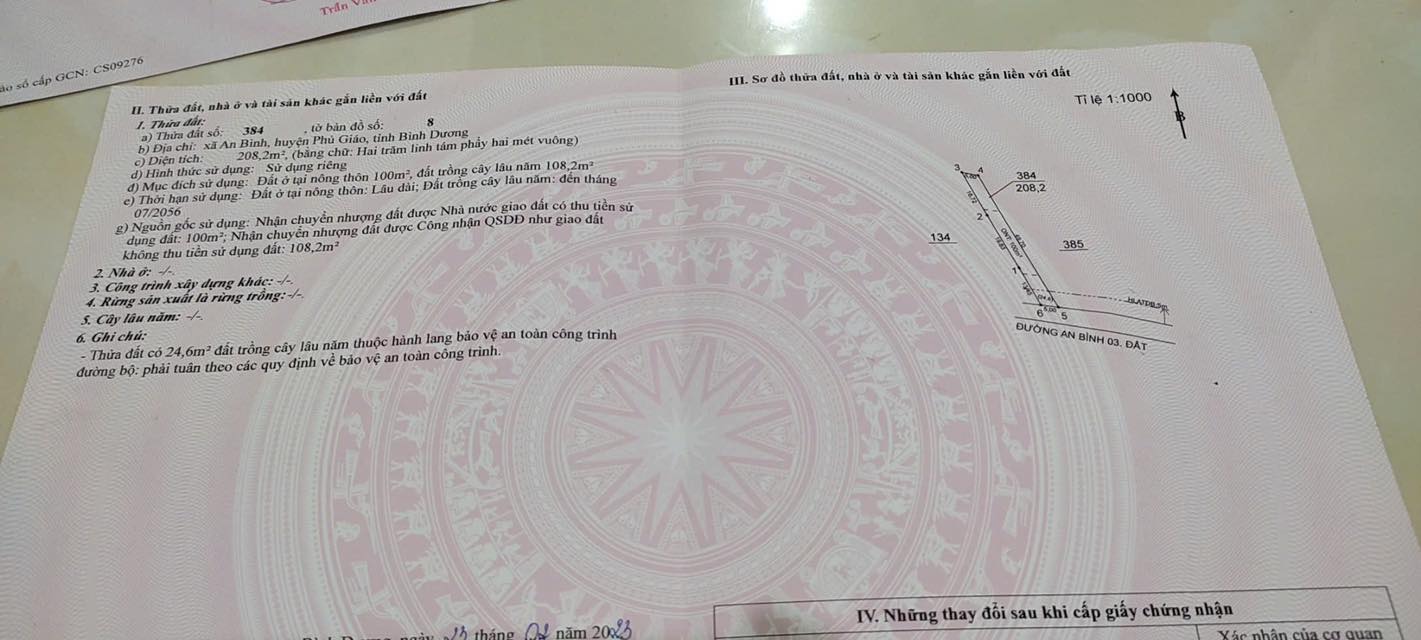 Trần Văn
ào sổ cấp GCN: CS09276
II. Thửa đất, nhà ở và tài sản khác gắn liền với đất
1. Thửa đất:
a) Thửa đất số: 384 , tờ bản đồ số: 8
b) Địa chỉ: xã An Bình, huyện Phú Giáo, tỉnh Bình Dương
c) Diện tích: 208,2m², (bằng chữ: Hai trăm linh tám phẩy hai mét vuông)
d) Hình thức sử dụng: Sử dụng riêng
đ) Mục đích sử dụng: Đất ở tại nông thôn 100m², đất trồng cây lâu năm 108,2m²
e) Thời hạn sử dụng: Đất ở tại nông thôn: Lâu dài; Đất trồng cây lâu năm: đến tháng
07/2056
g) Nguồn gốc sử dụng: Nhận chuyển nhượng đất được Nhà nước giao đất có thu tiền sử
dụng đất: 100m²; Nhận chuyển nhượng đất được Công nhận QSDĐ như giao đất
không thu tiền sử dụng đất: 108,2m²
2. Nhà ở: -/-.
3. Công trình xây dựng khác: -/-.
4. Rừng sản xuất là rừng trồng: -/-.
5. Cây lâu năm: -/-.
6. Ghi chú:
- Thửa đất có 24,6m² đất trồng cây lâu năm thuộc hành lang bảo vệ an toàn công trình
đường bộ: phải tuân theo các quy định về bảo vệ an toàn công trình.
III. Sơ đồ thửa đất, nhà ở và tài sản khác gắn liền với đất
Tỉ lệ 1:1000
B
3 4
384
208,2
2
134
385
ONT 100m²
1
6 5,00 5
ĐƯỜNG AN BÌNH 03. ĐẤT
ngày 23 tháng 02 năm 2023
IV. Những thay đổi sau khi cấp giấy chứng nhận
Xác nhận của cơ quan